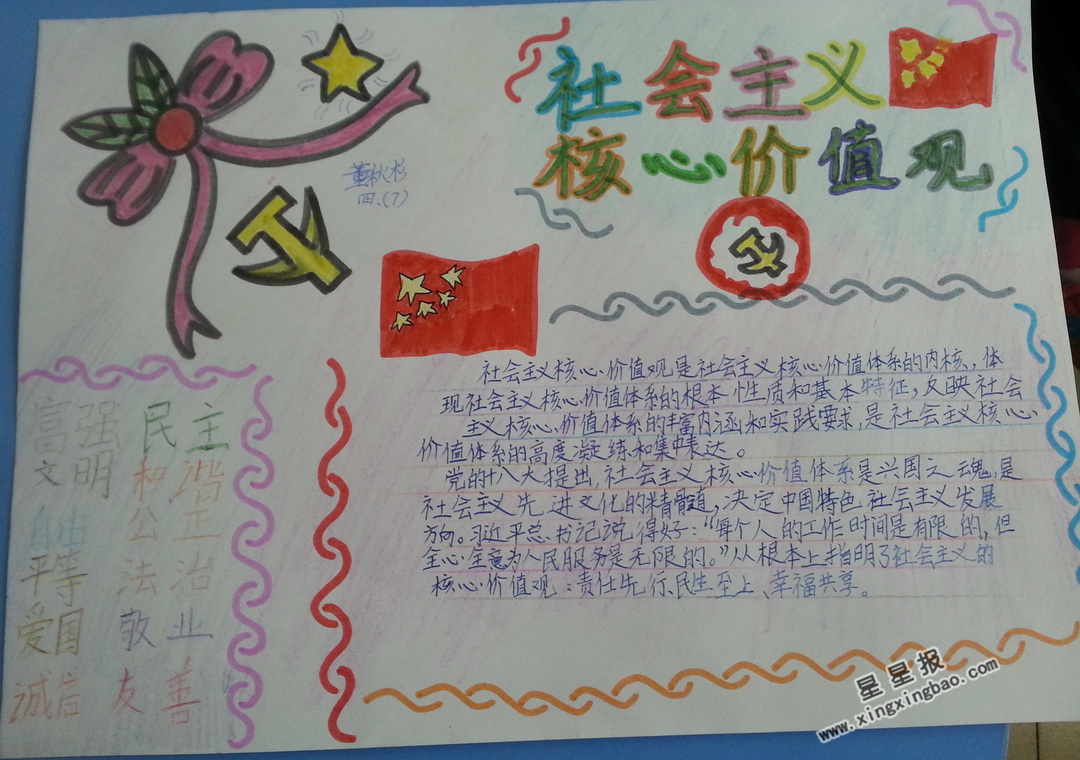 社会主义
核心价值观
董秋杉
四.(7)
富强 民主
文明 和谐
自由 公正
平等 法治
爱国 敬业
诚信 友善
社会主义核心价值观是社会主义核心价值体系的内核,体
现社会主义核心价值体系的根本性质和基本特征,反映社会
主义核心价值体系的丰富内涵和实践要求,是社会主义核心
价值体系的高度凝练和集中表达。
党的十八大提出,社会主义核心价值体系是兴国之魂,是
社会主义先进文化的精髓,决定中国特色社会主义发展
方向。习近平总书记说得好:“每个人的工作时间是有限的,但
全心全意为人民服务是无限的。”从根本上指明了社会主义的
核心价值观:责任先行、民生至上、幸福共享。
星星报
www.xingxingbao.com